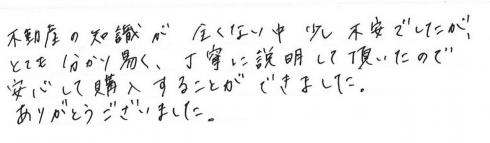 不動産の知識が全くない中少し不安でしたが、
とても分かり易く、丁寧に説明して頂いたので
安心して購入することができました。
ありがとうございました。